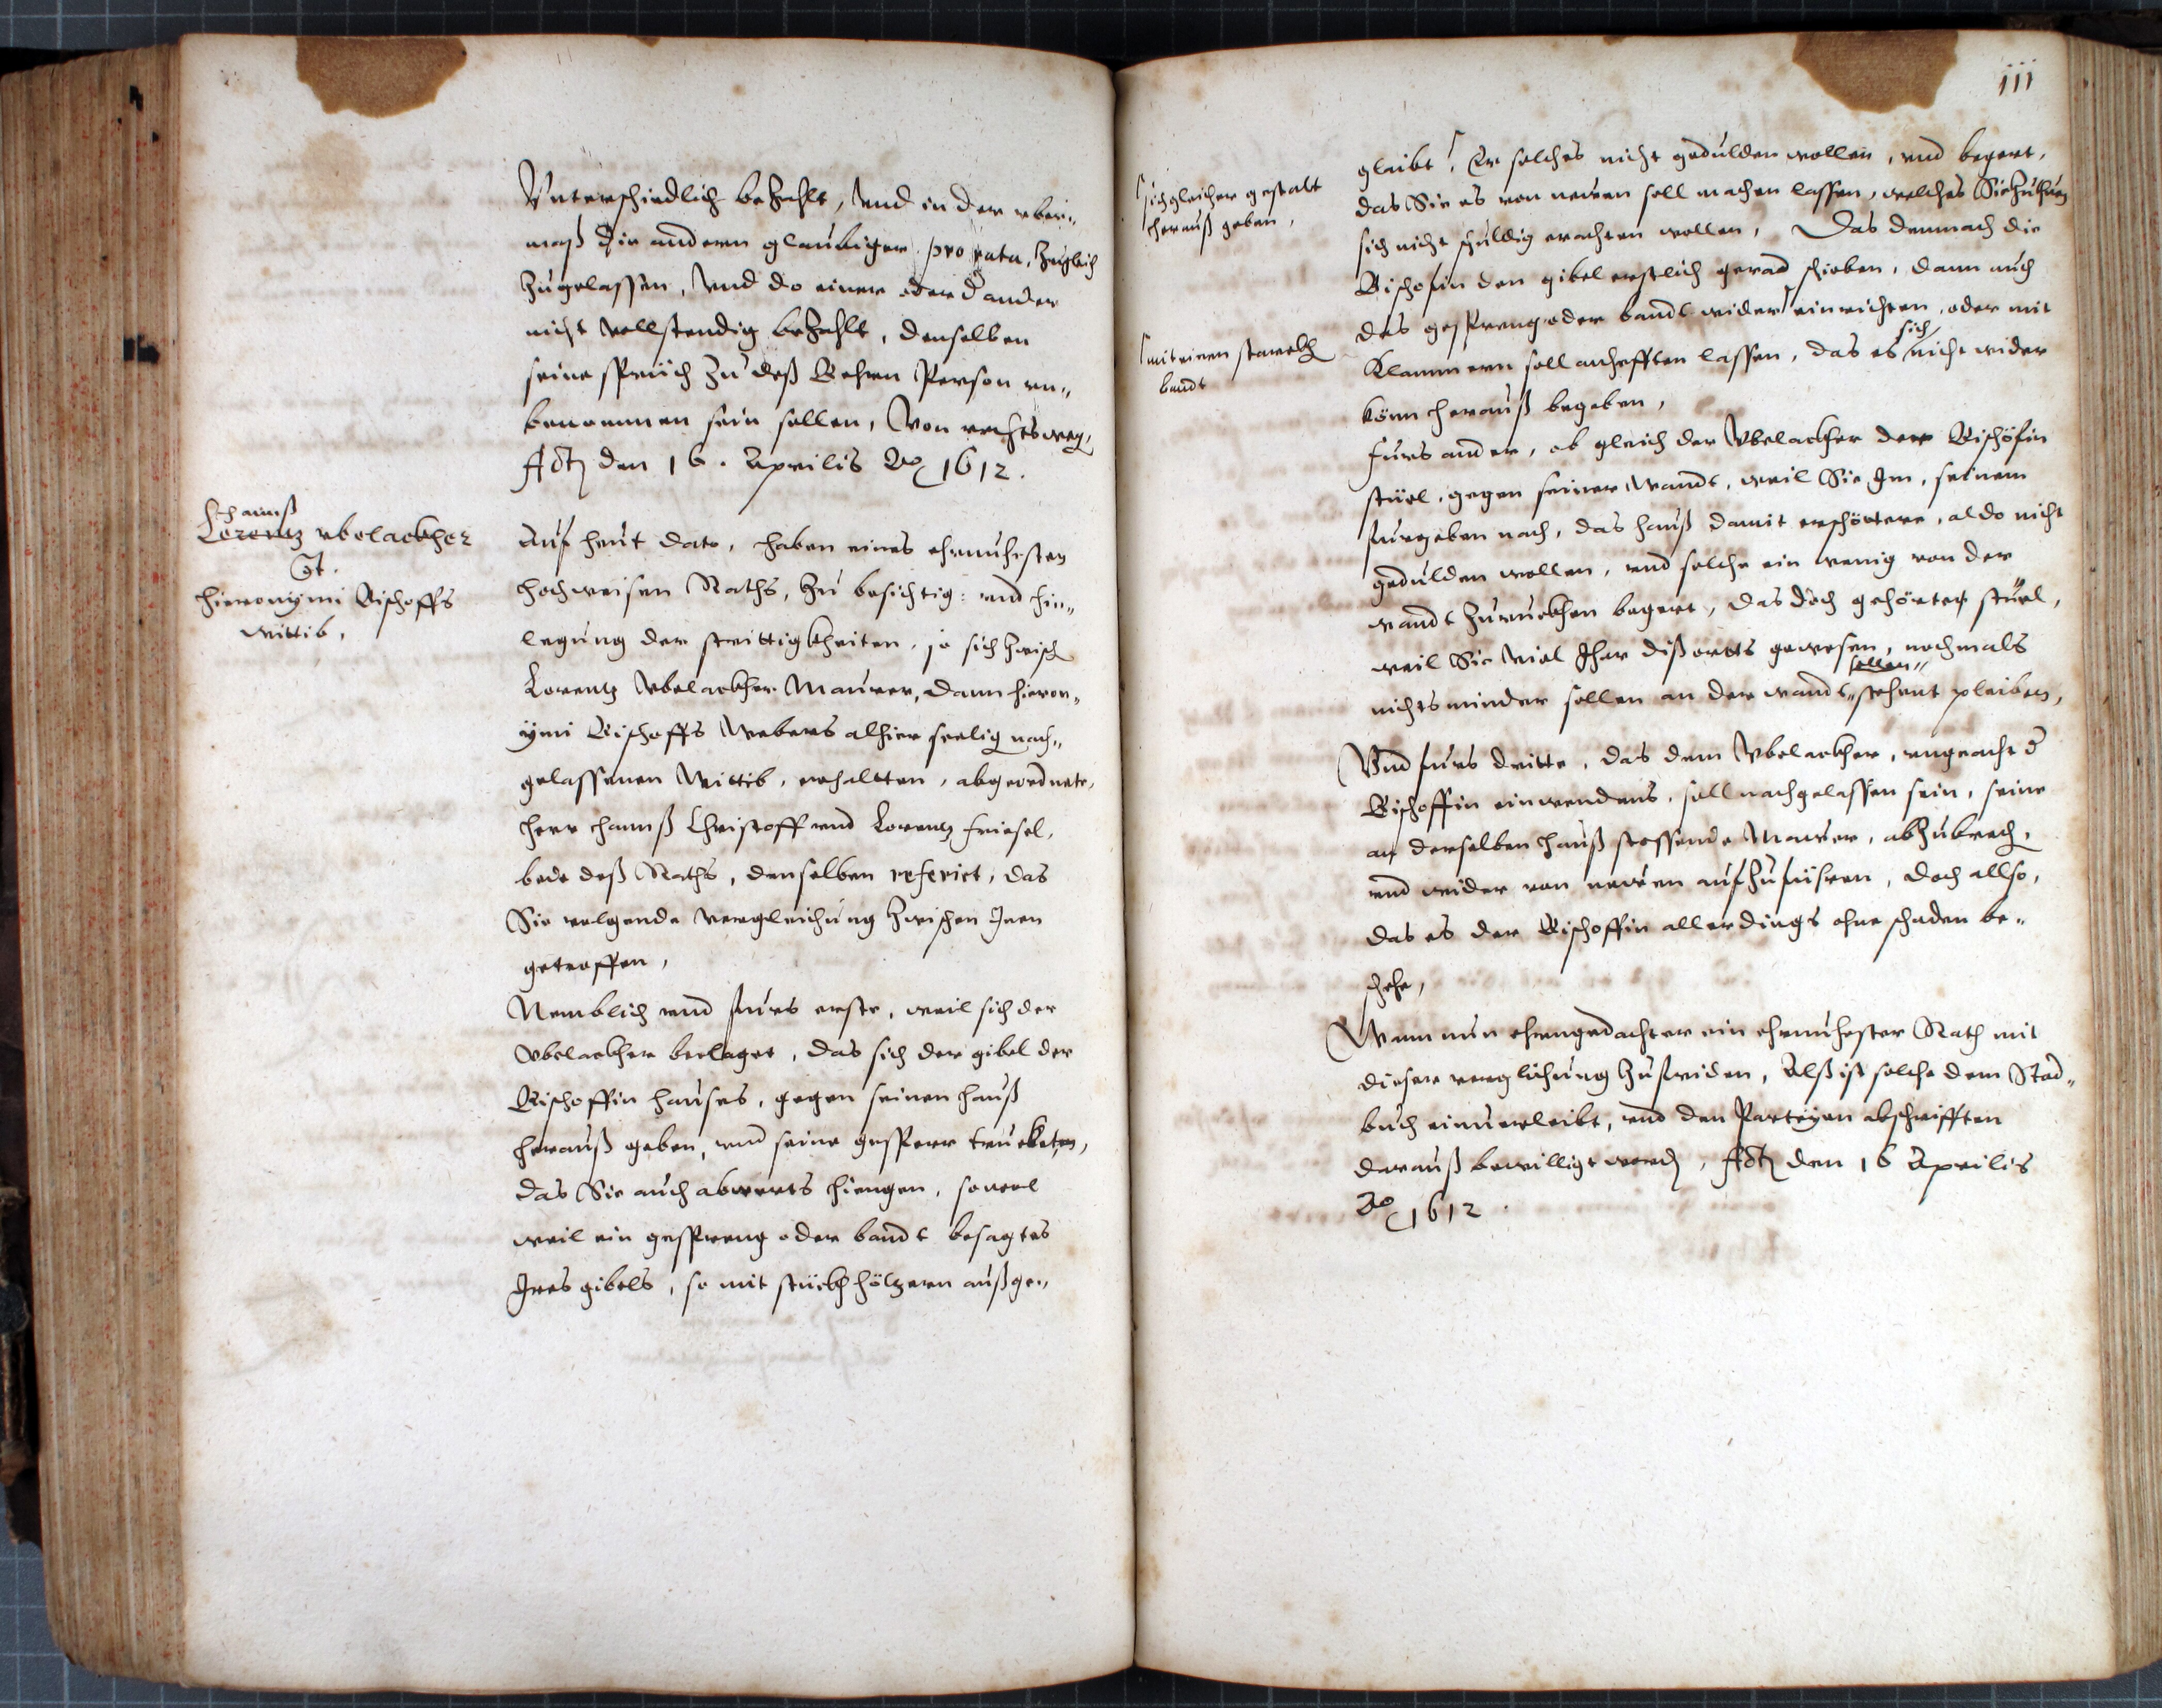 Vnterschiedlich bezahlt, vnd in der vber„
maß die andern glaubiger pro rata, zugleich
zugelassen, vnd do einer oder d ander
nicht vollstendig bezahlt, denselben
seine sprüch zu deß Person vn„
benommen sein sollen, Von rechtsweg,
Actum den 16. Aprilis Ao 1612.
Hannß
Lorentz vbelackher
Ct.
Hieronymi Bischoffs
wittib,
Auf heut dato, haben eines ehrnuhesten
hochweisen Raths, zu besichtig: vnd hin„
legung der strittigkheiten, so sich zwisch
Lorentz Vbelackher Maurer, dann Hieron„
ymi Bischoffs Webers alhier seelig nach„
gelassenen Wittib, erhaltten, abgeordnete,
Herr Hannß Christoff vnd Lorentz Friesel,
bede deß Raths, denselben referiert, das
Sie volgende vergleichung zwischen Inen
getroffen,
Nemblich vnd furs erste, weil sich der
Vbelackher beclaget, das sich der gibel der
Bischoffin hauses, gegen seinen hauß
herauß geben, vnd seine gesperr truckten,
das Sie auch abwerts hiengen, souerl
weil ein gespreng oder bandt besagtes
Ires gibels, so mit stückh hölzern außge„
111
glaibt, Er solches nicht gedulden wollen, vnd begert,
sich gleicher gestalt
herauß geben,
das Sie es von neuen soll machen lassen, welches Sie zuthun
sich nicht schuldig erachten wollen, Das demnach die
Bischofin den gibel erstlich gerad schieben, dann auch
das gespreng oder bandt wider einrichten, oder mit
mit einem starckh
bandt
Klammern soll anhefften lassen, das es sich nicht wider
könn herauß begeben,
Furs ander, ob gleich der Vbelackher der Bischöfin
stüel, gegen seiner Wandt, weil Sie Im, seinem
furgeben nach, das hauß damit erschöttere, aldo nicht
gedulden wollen, vnd solche ein wenig von der
wandt zuruckhen begert, das doch gehörte stüel,
weil Sie Viel Ihar diß ortts gewesen, nochmals
nichts minder sollen an der wandt sollen stehent pleiben,
Vnd furs dritte, das dem Vbelackher, vngeacht d
Bischoffin einwendens, soll nachgelassen sein, seine
an derselben hauß stossende Maurer, abzubrech,
vnd wider von neuen aufzufüehren, doch allso,
das es der Bischoffin allerdings ohne schaden be„
schehe,
Wann nun ehrngedachter ein ehrnuhester Rath mit
dieser verglichung zufriden, Alß ist solche dem Stad„
buch einuerleibt, vnd den Parteyen abschrifften
darauß bewilligt word, Actum den 16 Aprilis
Ao 1612.